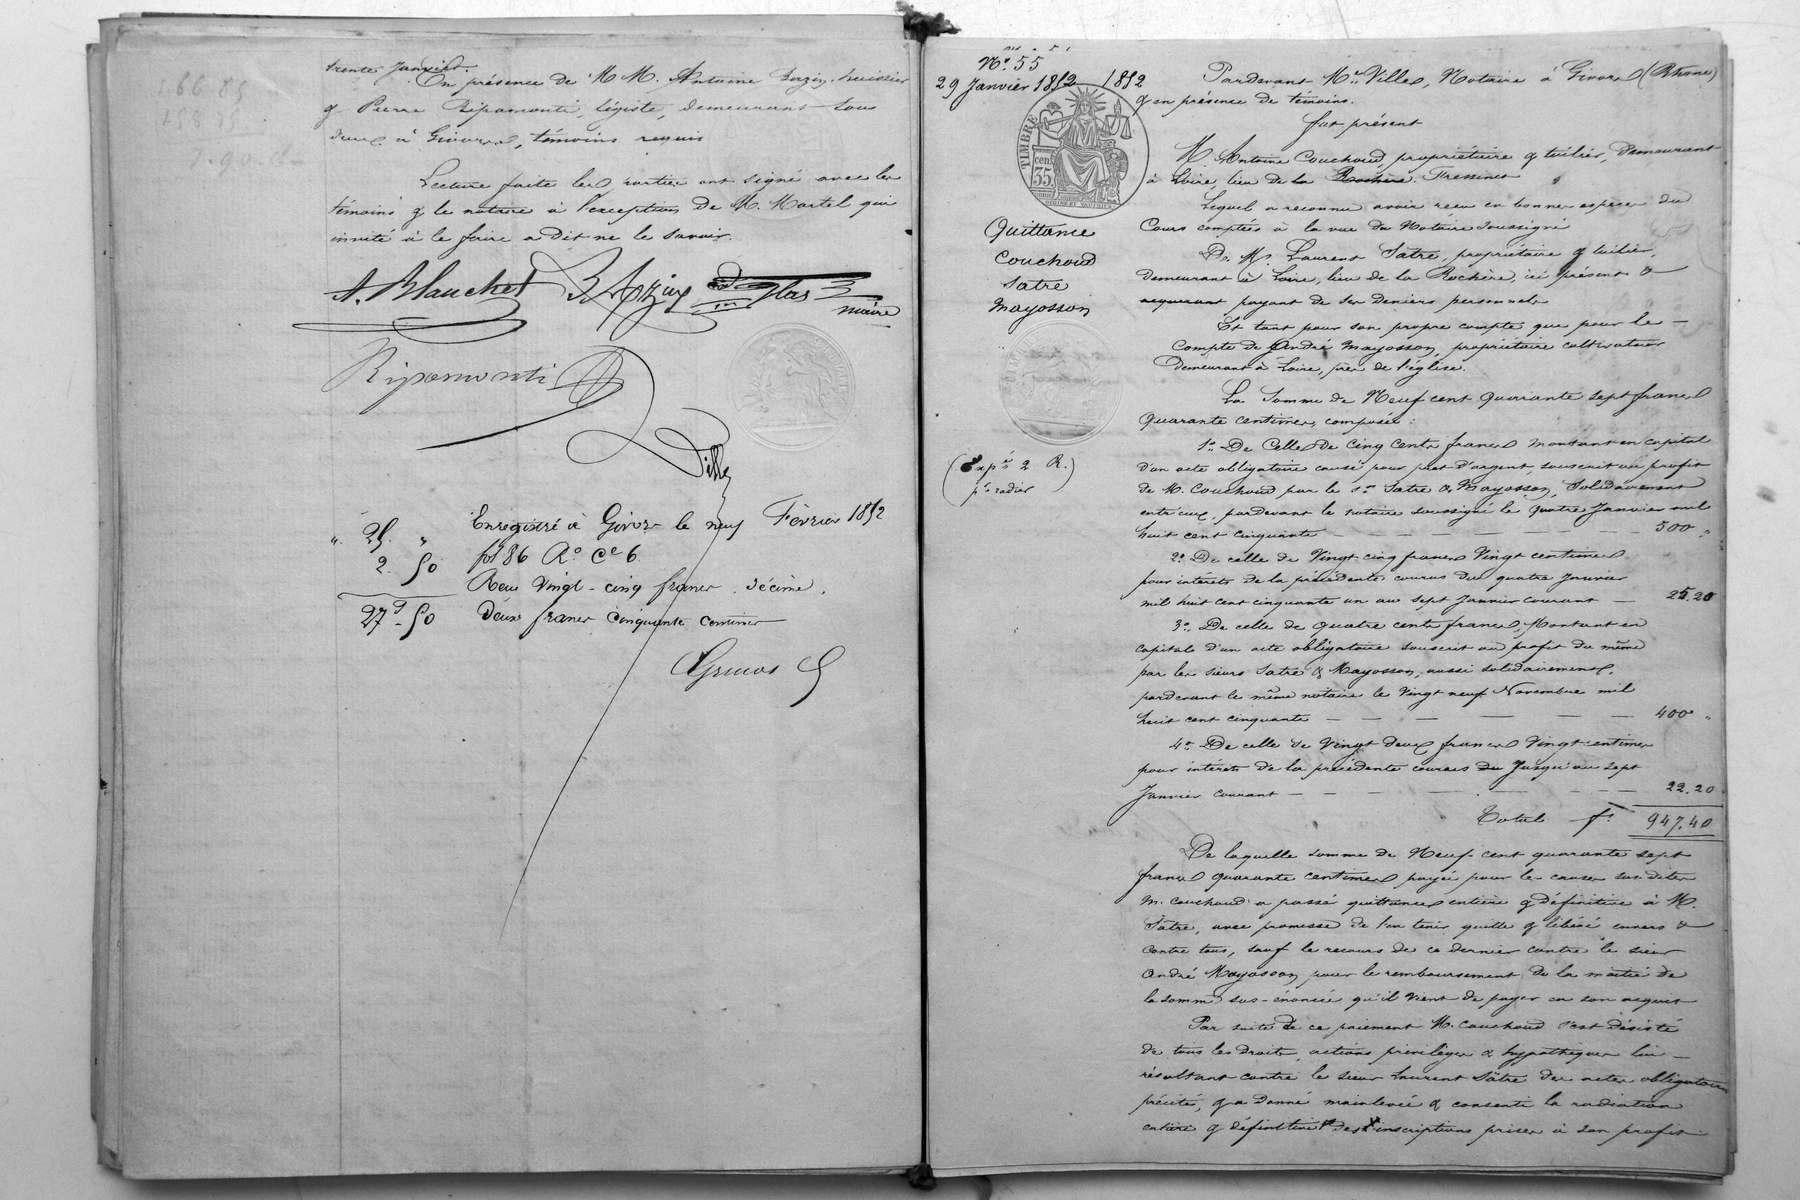 trente Janvier.
En présence de M M. Antoine huissier
& Pierre Ripamonti, légiste, demeurant tous
deux à Givors, témoins requis
Lecture faite les parties ont signé avec les
témoins & le notaire à l'exception de M. Martel qui
invité à le faire a dit ne le savoir.
A. Blanchet
maire
Ripamonti
Ville
Enregistré à Givors le neuf Février 1852
fol 86 Ro Ce 6
Reçu Vingt-cinq francs, décime,
Deux francs cinquante centimes
" 25. "
2. 50
27 - 50
No 55
29 Janvier 1852 1852
TIMBRE
35 cen
Quittance
Couchoud
Satre
Mayosson
(Expée 2 R.)
pr radier
Pardevant Me Ville, Notaire à Givors (Rhône)
& en présence de témoins.
fut présent
M. Antoine Couchoud, propriétaire & tuilier, demeurant
à Loire, lieu de la Rochère. Fressinet
Lequel a reconnu avoir reçu en bonnes espèces du
Cours comptés à la vue du Notaire soussigné
De Mr. Laurent Satre, propriétaire & tuilier,
demeurant à Loire, lieu de la Rochère, ici présent &
requerant payant de ses deniers personnels
Et tant pour son propre compte que pour le
Compte de André Mayosson, propriétaire cultivateur
Demeurant à Loire, près de l'église.
La Somme de Neuf cent quarante sept francs
Quarante centimes, composée:
1o De Celle de Cinq Cents francs montant en capital
d'un acte obligatoire causé pour prêt d'argent, souscrit au profit
de M. Couchoud par le sr Satre & Mayosson, Solidairement
entr'eux, pardevant le notaire soussigné le quatre Janvier mil
huit cent cinquante 500 "
2o De celle de Vingt cinq francs Vingt centimes
pour intérêts de la précédente courus du quatre Janvier
mil huit cent cinquante un au sept Janvier courant 25.20
3o De celle de quatre cents francs, Montant en
capital d'un acte obligatoire souscrit au profit du même
par les sieurs Satre & Mayosson, aussi solidairement,
pardevant le même notaire le Vingt neuf Novembre mil
huit cent cinquante 400 "
4o De celle de Vingt deux francs Vingt centimes
pour intérêts de la précédente courus du Jusqu'au sept
Janvier courant 22.20
Total fs 947.40
De laquelle somme de Neuf cent quarante sept
francs quarante centimes payée pour les causes sus-dites
M. Couchoud a passé quittance entière & définitive à M.
Satre, avec promesse de l'en tenir quitte & libéré envers &
contre tous, sauf le recours de ce dernier contre le sieur
André Mayosson pour le remboursement de la moitié de
la somme sus-énoncée qu'il vient de payer en son acquit
Par suite de ce paiement M. Couchoud s'est désisté
de tous les droits, actions privilèges & hypothèques lui
résultant contre le sieur Laurent Satre des actes obligatoires
précités, & a donné mainlevée & consenti la radiation
entière & définitive des inscriptions prises à son profit